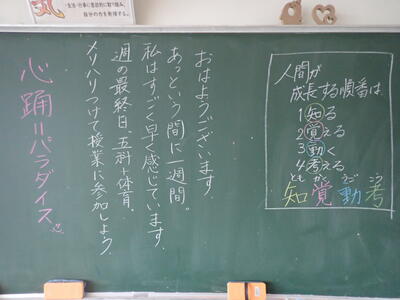 気
・生活・行事に意欲的に取り組み、
自分の力を発揮する。
人間が
成長する順番は
1 知る
2 覚える
3 動く
4 考える
とも かく うご こう
知 覚 動 考
おはようございます。
あっという間に一週間。
私はすごく早く感じています。
週の最終日、五科+体育。
メリハリつけて授業に参加しよう。
心踊=パラダイス